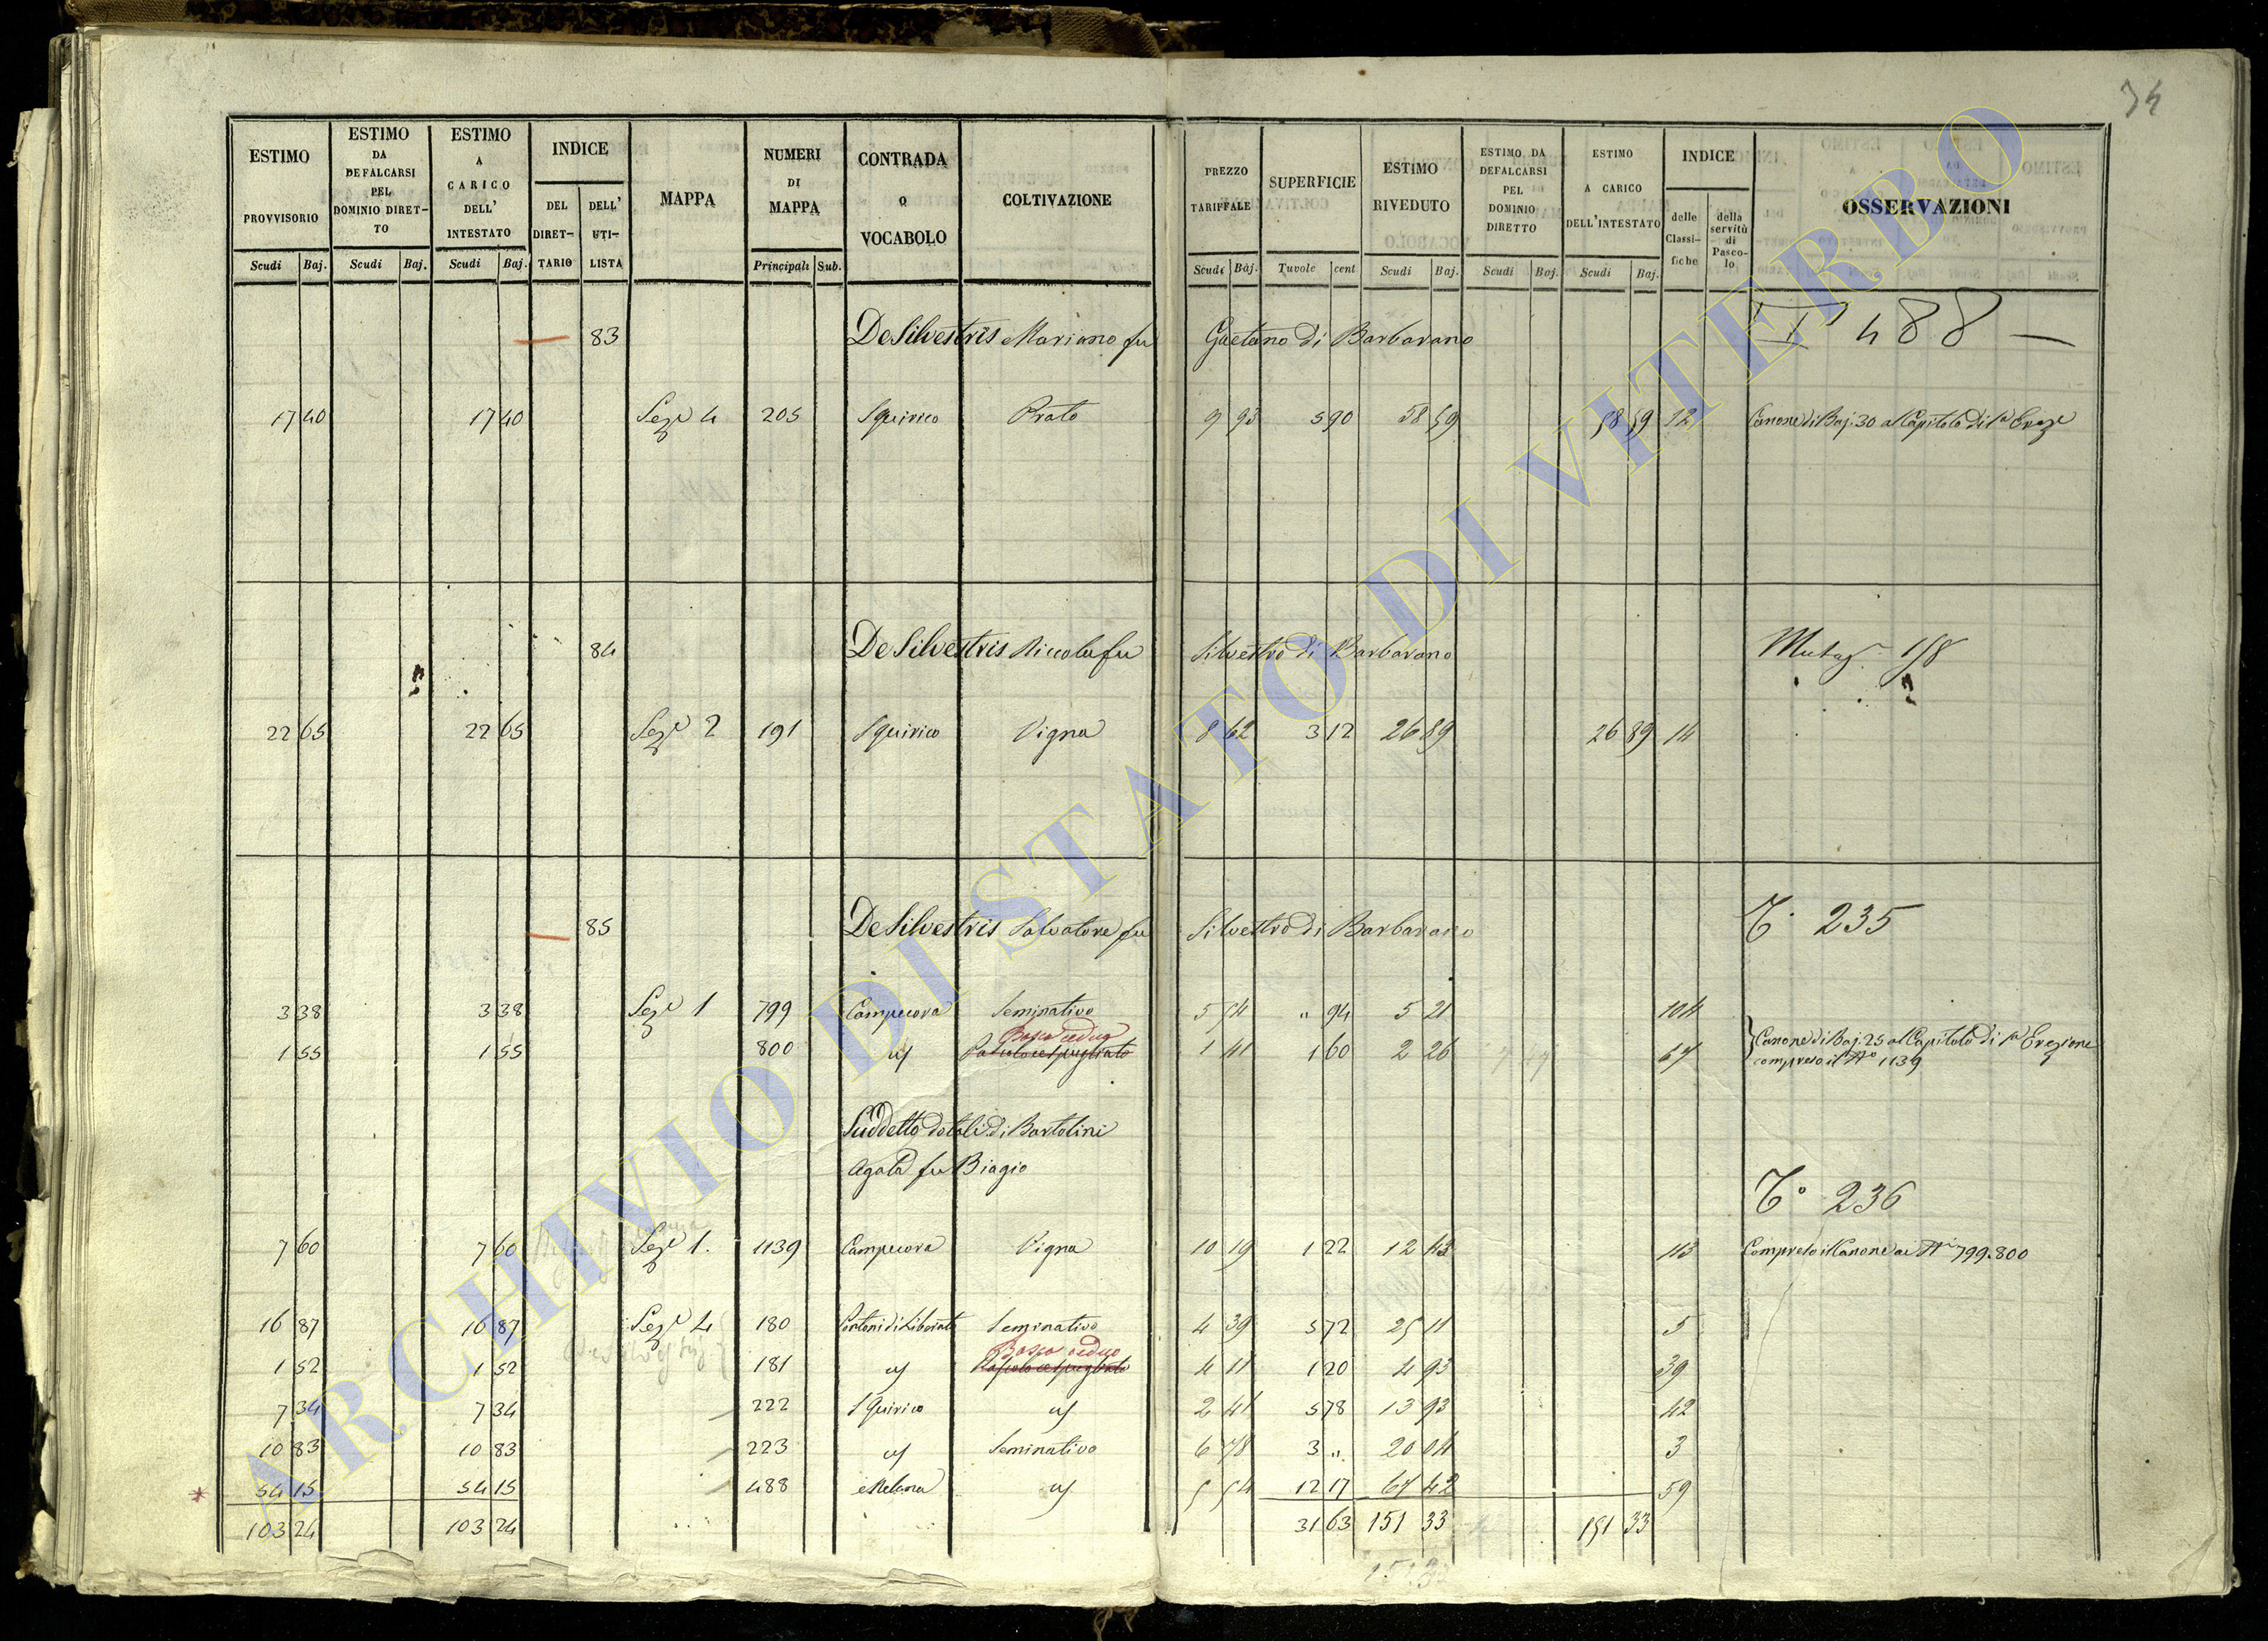 34
ESTIMO PROVVISORIO Scudi Baj.
ESTIMO DA DEFALCARSI PEL DOMINIO DIRETTO Scudi Baj.
ESTIMO A CARICO DELL' INTESTATO Scudi Baj.
INDICE DEL DIRETTARIO DELL' UTILISTA
MAPPA
NUMERI DI MAPPA Principali Sub.
CONTRADA O VOCABOLO
COLTIVAZIONE
PREZZO TARIFFALE Scudi Baj.
SUPERFICIE Tavole cent
ESTIMO RIVEDUTO Scudi Baj.
ESTIMO DA DEFALCARSI PEL DOMINIO DIRETTO Scudi Baj.
ESTIMO A CARICO DELL'INTESTATO Scudi Baj.
INDICE delle Classifiche della servitù di Pascolo
OSSERVAZIONI
83 De Silvestris Mariano fu Gaetano di Barbarano 488
17 40 17 40 Seze 4 205 S Quirico Prato 9 93 5 90 58 59 58 59 12 Canone di Baj. 30 al Capitolo di
84 De Silvestris Niccola fu Silvestro di Barbarano Mutaz. 158
22 65 22 65 Seze 2 191 S Quirico Vigna 8 62 3 12 26 89 26 89 14
85 De Silvestris Salvatore fu Silvestro di Barbarano To 235
3 38 3 38 Seze 1 799 Campecora Seminativo 5 54 " 94 5 21 104
Bosco ceduo
1 55 1 55 800 Pascolo cespugliato 1 41 1 60 2 26 67 Canone di Baj. 25 al Capitolo di Erezione
compreso il No 1139
Suddetto dotali di Bartolini
Agata fu Biagio
To 236
7 60 7 60 Seze 1. 1139 Campecora Vigna 10 19 1 22 12 43 113 Compreso il Canone ai Ni 799.800
16 87 16 87 Seze 4 180 Seminativo 4 39 5 72 25 11 5
Bosco ceduo
1 52 1 52 181 Pascolo cespugliato 4 11 1 20 4 93 39
7 34 7 34 222 S Quirico 2 41 5 78 13 93 42
10 83 10 83 223 Seminativo 6 78 3 " 20 04 3
54 15 54 15 488 5 54 12 17 67 42 59
103 24 103 24 31 63 151 33 151 33
ARCHIVIO DI STATO DI VITERBO